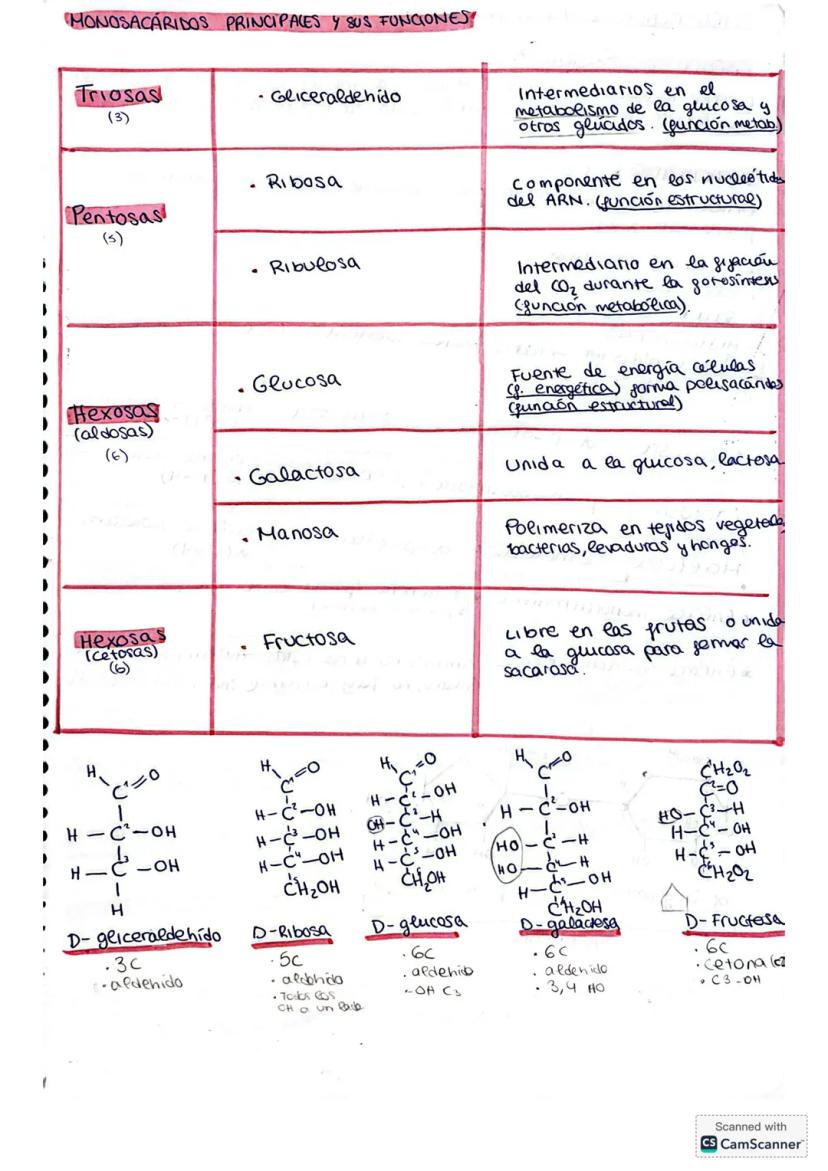 MONOSACÁRIDOS PRINCIPALES Y SUS FUNCIONES
Triosas
(3)
• Gliceraldehído
Intermediarios en el
metabolismo de la glucosa y
otros glúcidos. (función metab.)
Pentosas
(5)
• Ribosa
Componente en los nucleótidos
del ARN. (función estructural)
• Ribulosa
Intermediario en la fijación
del CO₂ durante la fotosíntesis
(función metabólica).
Hexosas
(aldosas)
(6)
• Glucosa
Fuente de energía células
(f. energética) forma polisacáridos
(función estructural)
• Galactosa
Unida a la glucosa, lactosa
• Manosa
Polimeriza en tejidos vegetele
bacterias, levaduras y hongos.
Hexosas
(cetosas)
(6)
• Fructosa
Libre en las frutas o unida
a la glucosa para formar la
sacarosa.
H C¹=O
H — C² — OH
H — C³ — OH
H
D-gliceraldehído
• 3C
• aldehído
H C¹=O
H — C² — OH
H — C³ — OH
H — C⁴ — OH
C⁵H₂OH
D-Ribosa
• 5C
• aldehído
• Todos los
OH a un lado
H C¹=O
H — C² — OH
OH — C³ — H
H — C⁴ — OH
H — C⁵ — OH
CH₂OH
D-glucosa
• 6C
• aldehído
-OH C3
H C¹=O
H — C² — OH
HO — C³ — H
HO — C⁴ — H
H — C⁵ — OH
C⁶H₂OH
D-galactosa
• 6C
• aldehído
• 3,4 HO
CH₂O₂
C²=O
HO — C³ — H
H — C⁴ — OH
H — C⁵ — OH
CH₂O₂
D-Fructosa
• 6C
• cetona
• C3-OH
Scanned with
CS CamScanner